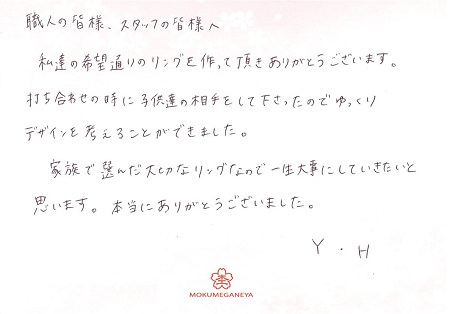 職人の皆様、スタッフの皆様へ
私達の希望通りのリングを作って頂きありがとうございます。
打ち合わせの時に子供達の相手をして下さったのでゆっくり
デザインを考えることができました。
家族で選んだ大切なリングなので一生大事にしていきたいと
思います。本当にありがとうございました。
Y・H
MOKUMEGANEYA